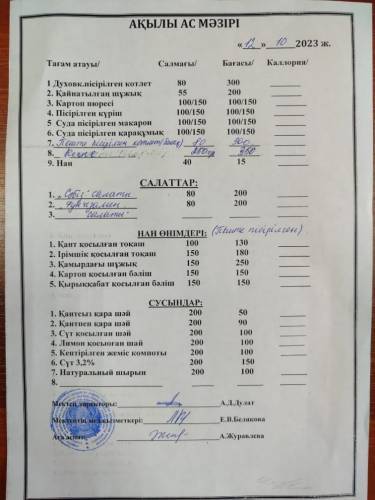 АҚЫЛЫ АС МӘЗІРІ
« 12 » 10 2023 ж.
Тағам атауы/ Салмағы/ Бағасы/ Каллория/
1 Духовк.пісірілген котлет 80 300
2. Қайнатылған шұжық 55 200
3. Картоп пюресі 100/150 100/150
4. Пісірілген күріш 100/150 100/150
5 Суда пісірілген макарон 100/150 100/150
6. Суда пісірілген қарақұмық 100/150 100/150
7. Пеште пісірілген котлет 80 300
8.
9. Нан 40 15
САЛАТТАР:
1. салаты 80 200
2. 80 200
3. салаты
НАН ӨНІМДЕРІ: (Пеште пісірілген)
1. Қант қосылған тоқаш 100 130
2. Ірімшік қосылған тоқаш 150 180
3. Қамырдағы шұжық 150 250
4. Картоп қосылған бәліш 150 150
5. Қырыққабат қосылған бәліш 150 150
СУСЫНДАР:
1. Қантсыз қара шай 200 50
2. Қантпен қара шай 200 90
3. Сүт қосылған шай 200 100
4. Лимон қосылған шай 200 100
5. Кептірілген жеміс компоты 200 100
6. Сүт 3,2% 200 150
7. Натуральный шырын 200 100
8.
Мектеп директоры: А.Д.Дулат
Мектептің медқызметкері: Е.В.Белякова
Аға аспаз: А.Журавлева